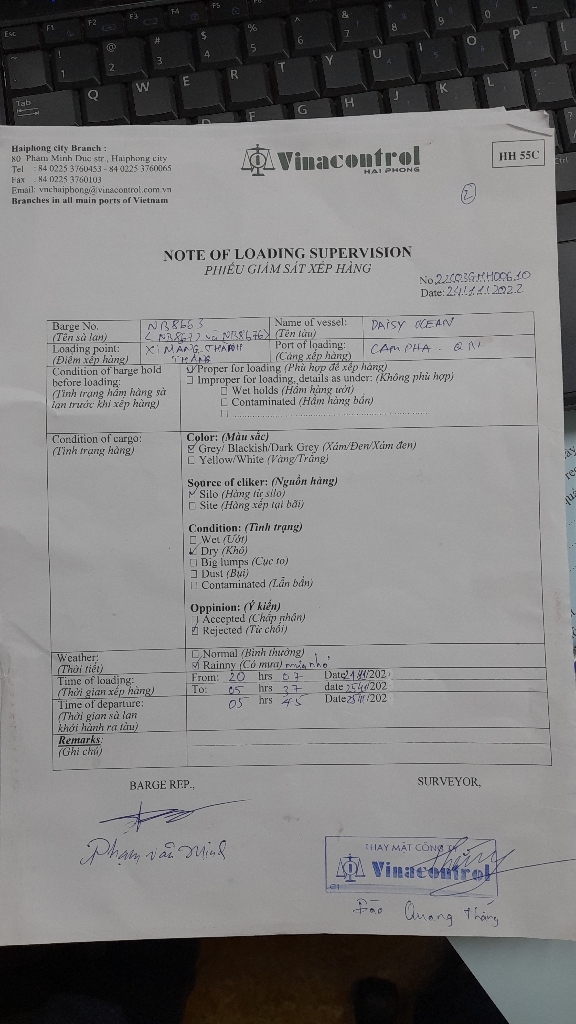 Haiphong city Branch :
80 Pham Minh Duc str., Haiphong city
Tel : 84 0225 3760453 - 84 0225 3760065
Fax : 84 0225 3760103
Email: vnchaiphong@vinacontrol.com.vn
Branches in all main ports of Vietnam
Vinacontrol
HAI PHONG
HH 55C
2
NOTE OF LOADING SUPERVISION
PHIẾU GIÁM SÁT XẾP HÀNG
No:
Date: 24/11/2022
Barge No. NB8663 Name of vessel: DAISY OCEAN
(Tên sà lan) (NB8677 và NB8676) (Tên tàu)
Loading point: XI MĂNG THÀNH THẮNG Port of loading: CAMPHA - QN
(Điểm xếp hàng) (Cảng xếp hàng)
Condition of barge hold before loading:
(Tình trạng hầm hàng sà lan trước khi xếp hàng)
☑ Proper for loading (Phù hợp để xếp hàng)
☐ Improper for loading, details as under: (Không phù hợp)
☐ Wet holds (Hầm hàng ướt)
☐ Contaminated (Hầm hàng bẩn)
☐ ...............................................
Condition of cargo:
(Tình trạng hàng)
Color: (Màu sắc)
☑ Grey/ Blackish/Dark Grey (Xám/Đen/Xám đen)
☐ Yellow/White (Vàng/Trắng)
Source of cliker: (Nguồn hàng)
☑ Silo (Hàng từ silo)
☐ Site (Hàng xếp tại bãi)
Condition: (Tình trạng)
☐ Wet (Ướt)
☑ Dry (Khô)
☐ Big lumps (Cục to)
☐ Dust (Bụi)
☐ Contaminated (Lẫn bẩn)
Oppinion: (Ý kiến)
☐ Accepted (Chấp nhận)
☑ Rejected (Từ chối)
Weather:
(Thời tiết)
☐ Normal (Bình thường)
☑ Rainny (Có mưa) mưa nhỏ
Time of loading: From: 20 hrs 07 Date 24/11/202
(Thời gian xếp hàng) To: 05 hrs 37 date 25/11/202
Time of departure: 05 hrs 45 Date 25/11/202
(Thời gian sà lan
khởi hành ra tàu)
Remarks:
(Ghi chú)
BARGE REP., SURVEYOR,
Phạm văn Minh
THAY MẶT CÔNG TY
Vinacontrol
Đào Quang Thắng
Esc
F1
F2
F3
F4
F5
Tab
Q
W
E
R
T
Y
U
I
O
P
F
G
H
J
K
L